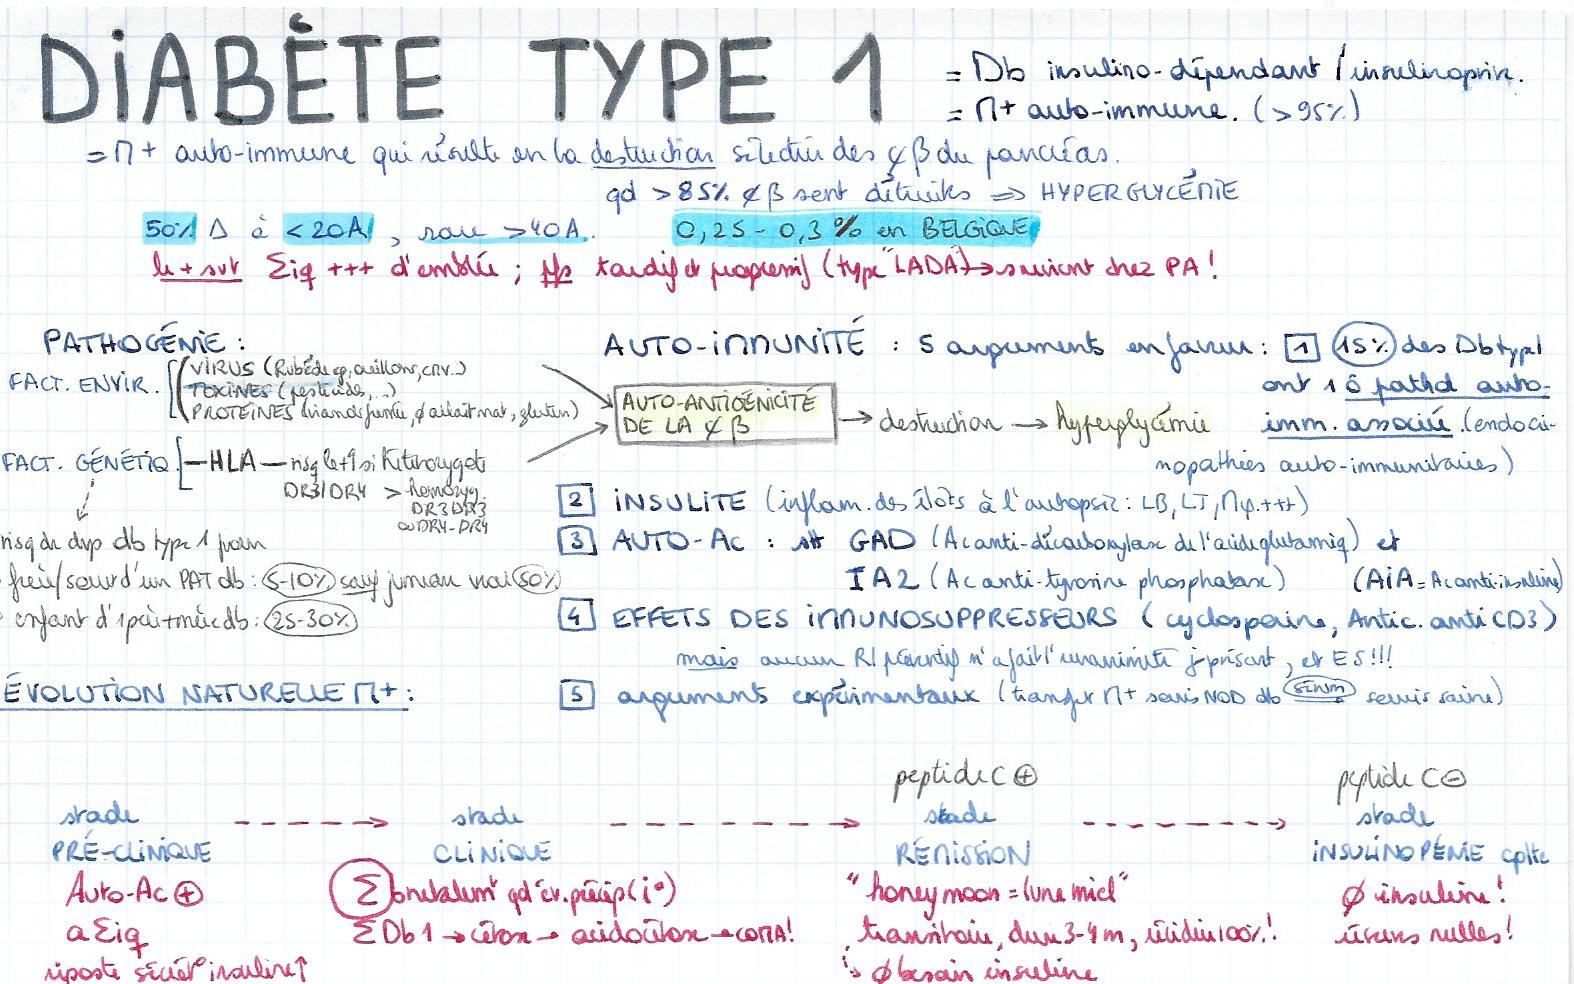 DIABÈTE TYPE 1
= Db insulino-dépendant / insulinoprive.
= Π+ auto-immune. (>95%)
= Π+ auto-immune qui résulte en la destruction sélective des ¢β du pancréas.
qd >85% ¢β sont détruites => HYPERGLYCÉMIE
50% Δ à <20A, rare >40A. 0,25-0,3% en BELGIQUE
le + svt Σiq +++ d'emblée ; tardif et progressif (type "LADA") → survient chez PA !
PATHOGÉNIE :
FACT. ENVIR.
VIRUS (Rubéole, oreillons, )
TOXINES (pesticides, ..)
PROTÉINES (viande fumée, ø allait mat, gluten)
FACT. GÉNÉTIQ
HLA — risq le + ↑ si hétérozygote
DR3/DR4 > homozyg.
DR3 DR3
ou DR4-DR4
risq de dvp db type 1 pour
frère/soeur d'un PAT db : 5-10% sauf jumeau vrai 50%
enfant d'1 père+mère db : 25-30%
AUTO-ANTIGÉNICITÉ
DE LA ¢β
→ destruction → hyperglycémie
AUTO-IMMUNITÉ : 5 arguments en faveur :
1 15% des Db type 1
ont 1 ô path auto-
imm. associée. (endocri-
nopathies auto-immunitaires)
2 INSULITE (inflam. des îlots à l'autopsie : LB, LT, Πφ.+++)
3 AUTO-Ac : GAD (Ac anti-décarboxylase de l'acide glutamiq) et
IA2 (Ac anti-tyrosine phosphatase) (AiA = Ac anti-insuline)
4 EFFETS DES IMMUNOSUPPRESSEURS (cyclosporine, Antic. anti CD3)
mais aucun R/ préventif n'a fait l'unanimité j-présent, et ES !!!
5 arguments expérimentaux (transfer Π+ souris NOD db souris saine)
ÉVOLUTION NATURELLE Π+ :
stade
PRÉ-CLINIQUE
Auto-Ac ⊕
aΣiq
riposte sécrét° insuline ↑
stade
CLINIQUE
Σ brutalem^t qd év. précip (i°)
ΣDb1 → cétose → acidocétose → COMA !
peptide C ⊕
stade
RÉMISSION
"honeymoon = lune miel"
transitoire, dure 3-4m, récidive 100% !
↳ ø besoin insuline
peptide C ⊖
stade
INSULINOPÉNIE cplte
ø insuline !
réserves nulles !